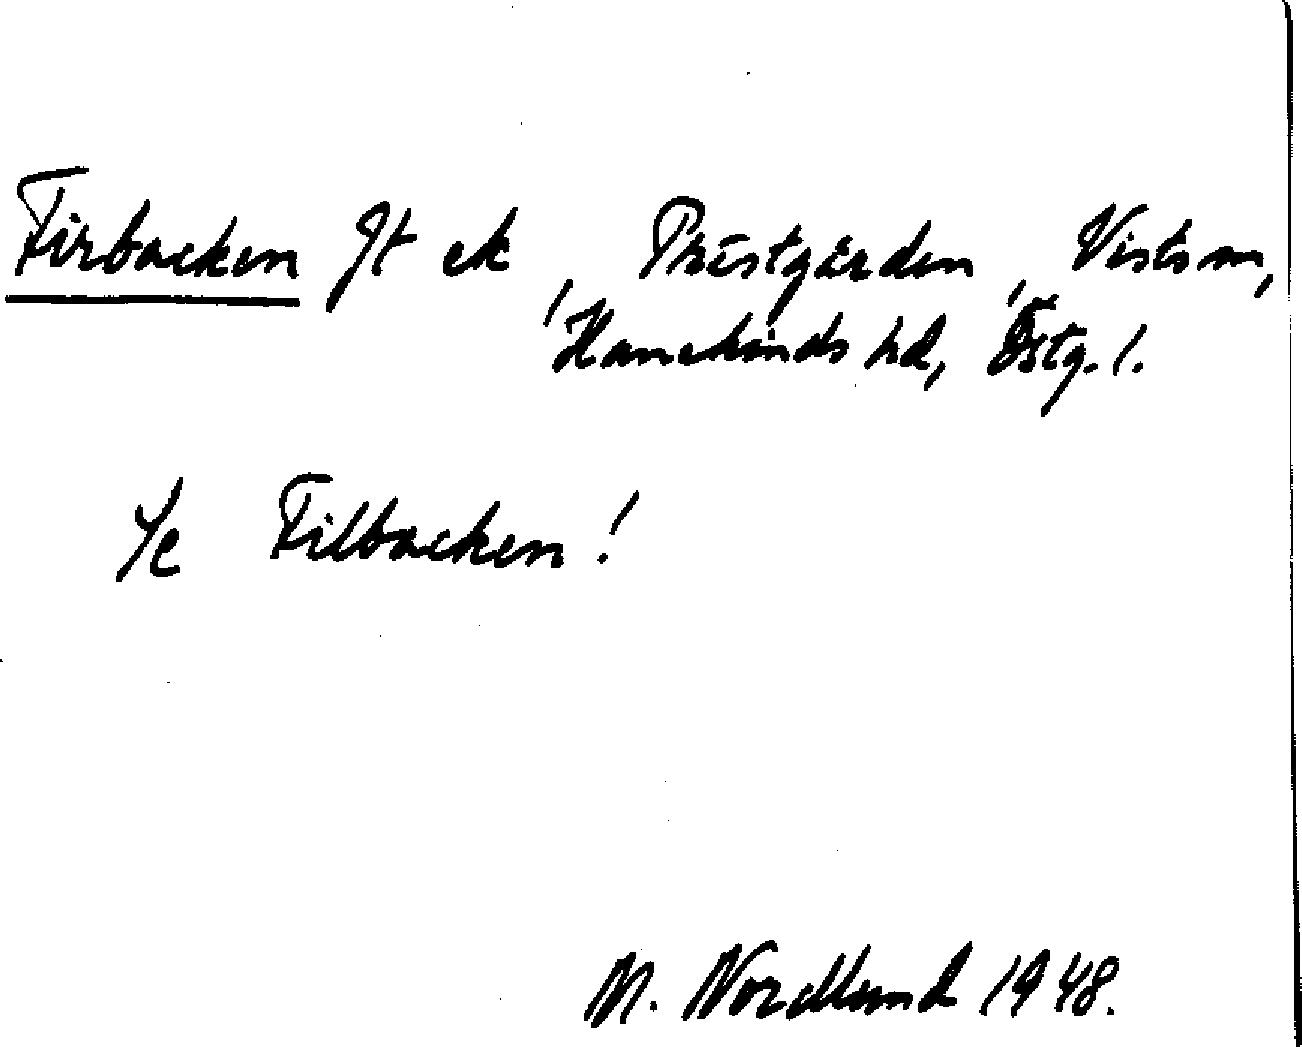 Firbacken Jt ek, Prästgården, Vists sn,
Hanekinds hd, Östg. l.
Se Filbacken!
M. Nordlund 1948.